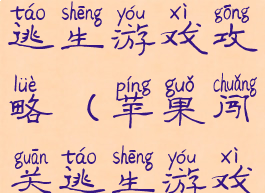 táo shēng yóu xì gōng
逃生游戏攻
lüè píng guǒ chuǎng
略（苹果闯
guān táo shēng yóu xì
关逃生游戏